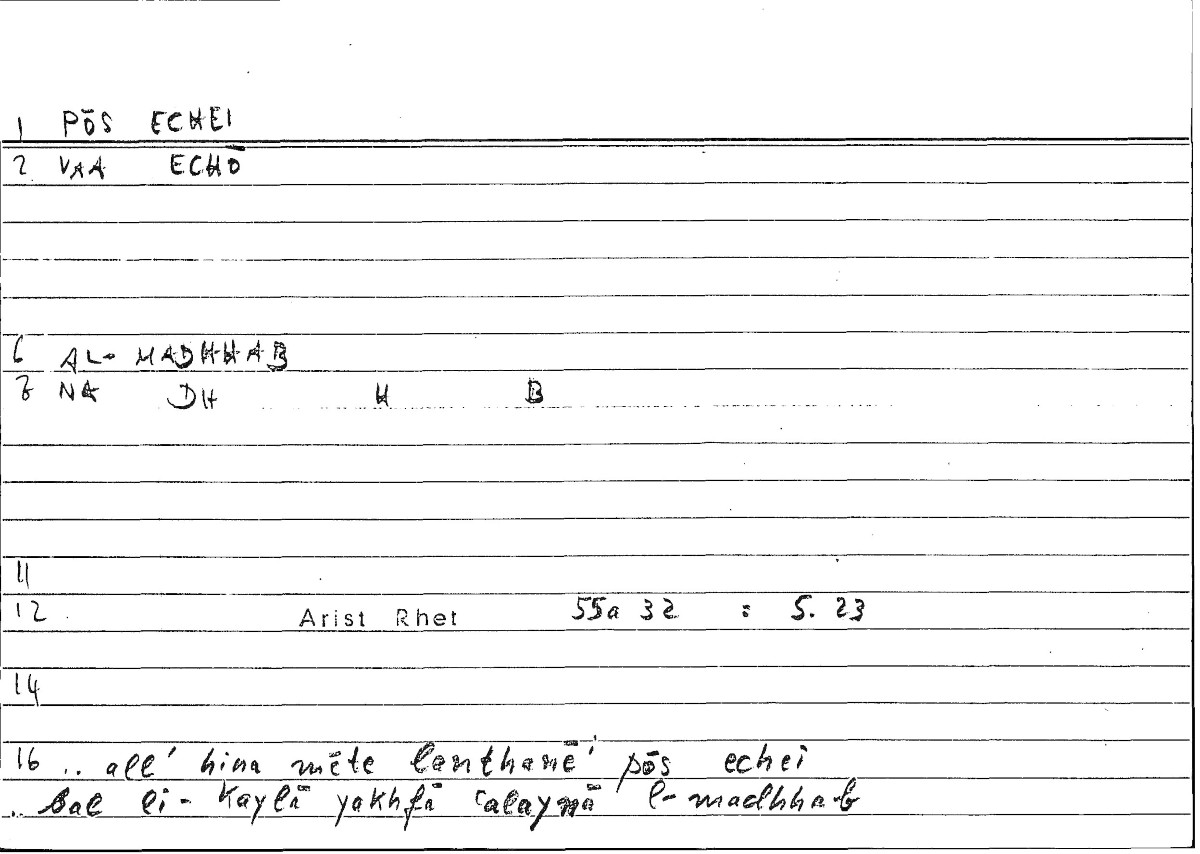 1 PŌS ECHEI
2 VAA ECHŌ
6 AL- MADHHAB
7 NA DH H B
11
12 Arist Rhet 55a 32 : 5. 23
14
16 .. all' hina mēte lanthanē' pōs echei
.. bal li- kaylā yakhfā ʿalaynā l-madhhab